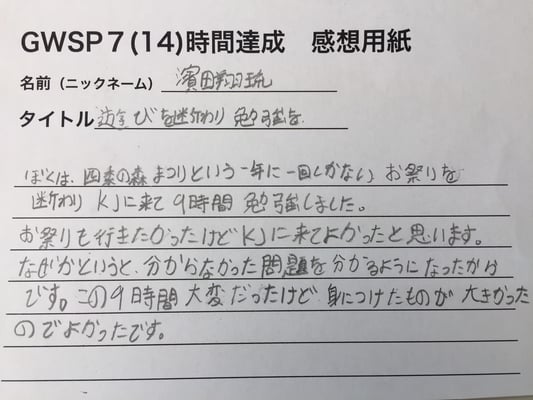 GWSP7(14)時間達成 感想用紙
名前(ニックネーム) 濱田翔琉
タイトル 遊びを断わり勉強を
ぼくは、四季の森まつりという一年に一回しかない お祭りを
断わり KJに来て 9時間 勉強しました。
お祭りも行きたかったけどKJに来てよかったと思います。
なぜかというと、分からなかった問題を分かるようになったから
です。この9時間大変だったけど、身につけたものが大きかった
のでよかったです。